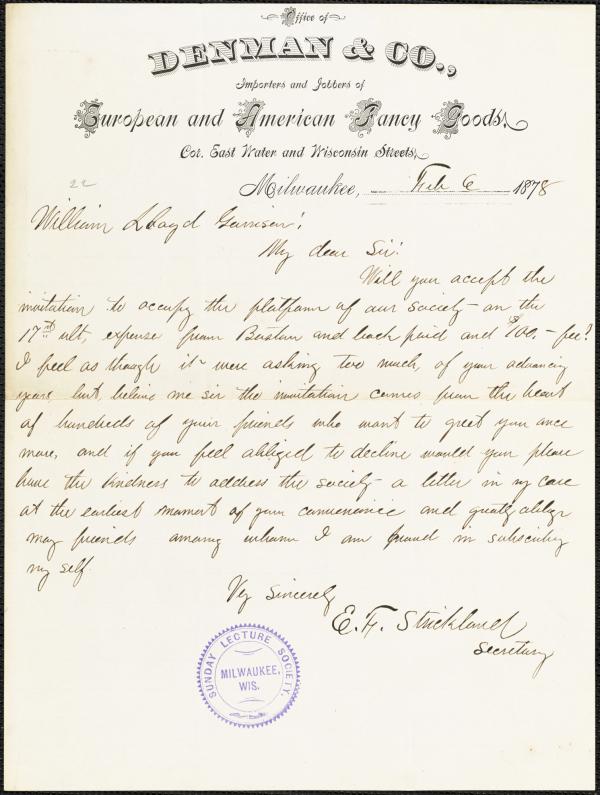 Office of
DENMAN & CO.,
Importers and Jobbers of
European and American Fancy Goods,
Cor. East Water and Wisconsin Streets,
22
Milwaukee, Feb 6 1878
William Lloyd Garrison!
My dear Sir!
Will you accept the
invitation to occupy the platform of our society on the
17th ult, expense from Boston and back paid and $100,- fee?
I feel as though it were asking too much, of your advancing
years but, believe me sir the invitation comes from the heart
of hundreds of your friends who want to greet you once
more, and if you feel obliged to decline would you please
have the kindness to address the society a letter in my care
at the earliest moment of your convenience and greatly oblige
many friends among whom I am proud in subscribing
my self.
Very Sincerely
E. F. Strickland
Secretary
SUNDAY LECTURE SOCIETY.
MILWAUKEE,
WIS.